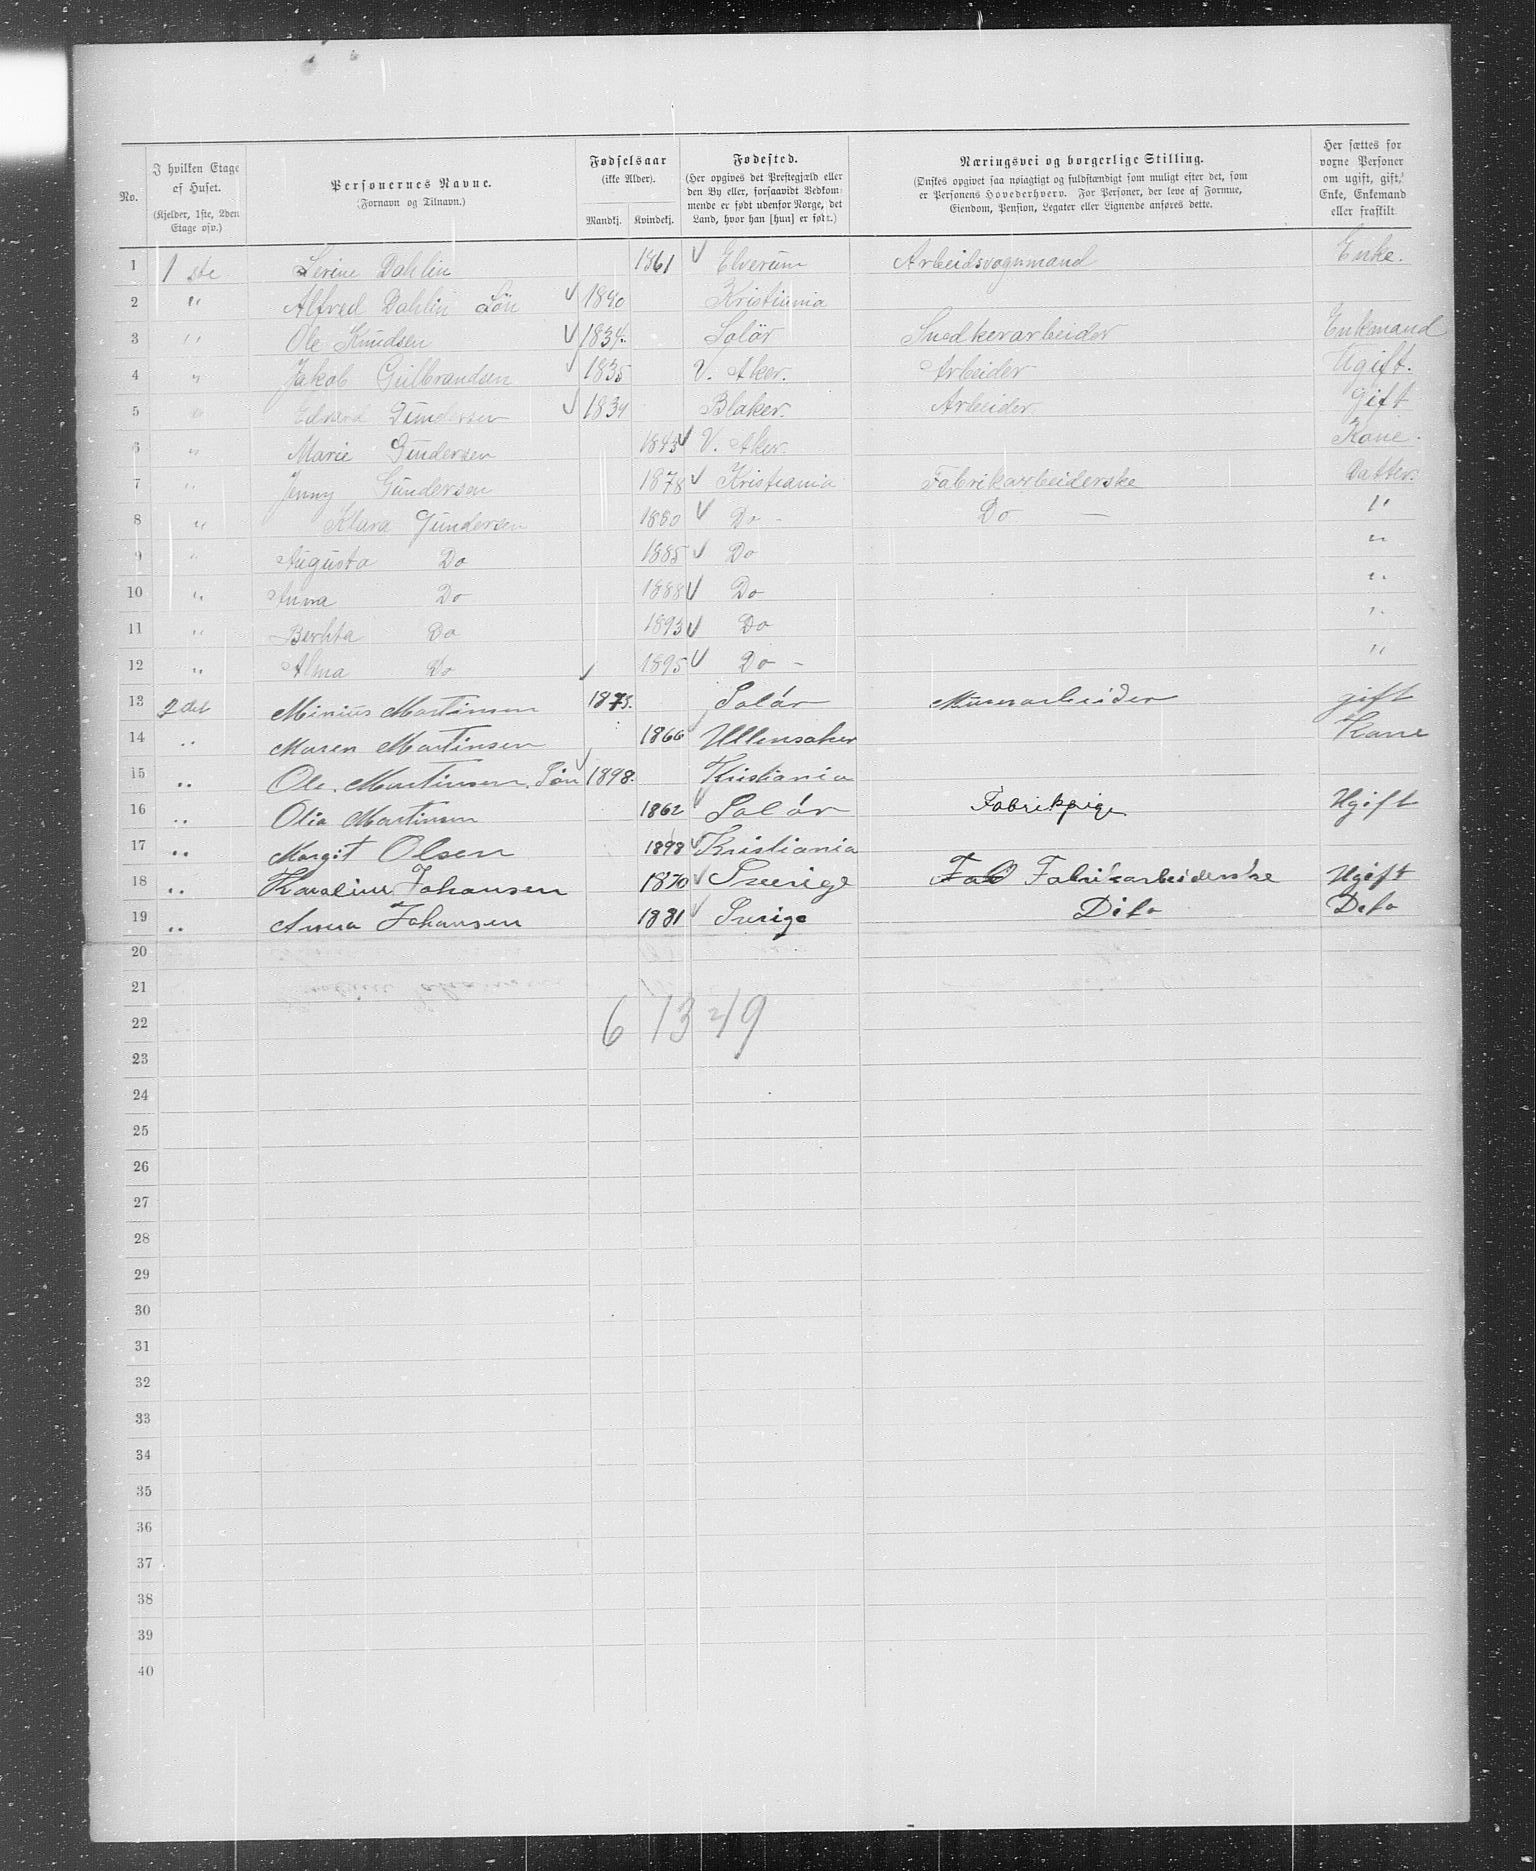 No. I hvilken Etage af Huset. (Kjelder, 1ste, 2den Etage osv.) Personernes Navne. (Fornavn og Tilnavn.) Fødselsaar (ikke Alder). Mandkj. Kvindekj. Fødested. (Her opgives det Prestegjæld eller den By eller, forsaavidt Vedkommende er født udenfor Norge, det Land, hvor han [hun] er født.) Næringsvei og borgerlige Stilling. (Ønskes opgivet saa nøiagtigt og fuldstændigt som muligt efter det, som er Personens Hovederhverv. For Personer, der leve af Formue, Eiendom, Pension, Legater eller Lignende anføres dette. Her sættes for voxne Personer om ugift, gift, Enke, Enkemand eller fraskilt
1 1 ste Serine Dahlin 1861 Elverum Arbeidsvognmand Enke.
2 " Alfred Dahlin Sön 1890 Kristiania
3 " Ole Knudsen 1834. Solör Snedkerarbeider Enkmand
4 " Jakob Gulbrandsen 1835 V. Aker. Arbeider Ugift.
5 " Edvard Gundersen 1834 Blaker. Arbeider Gift
6 " Marie Gundersen 1843 V. Aker. Kone.
7 " Jenny Gundersen 1878 Kristiania Fabrikarbeiderske Datter.
8 " Klara Gundersen 1880 Do - Do - "
9 " Augusta Do 1885 Do "
10 " Anna Do 1888 Do "
11 " Berhta Do 1893 Do "
12 " Alma Do 1895 Do - "
13 2 det Minius Martinsen 1873. Solør Murerarbeider gift
14 " Maren Martinsen 1866 Ullensaker Kone
15 " Ole. Martinsen. Søn 1898. Kristiania
16 " Olia Martinsen 1862 Solør Fabrikpige Ugift
17 " Margit Olsen 1898 Kristiania
18 " Karoline Johansen 1870 Sverige Fab Fabrikarbeiderske Ugift
19 " Anna Johansen 1881 Sverige Dito Dito
20
21
22 6 13 = 19
23
24
25
26
27
28
29
30
31
32
33
34
35
36
37
38
39
40